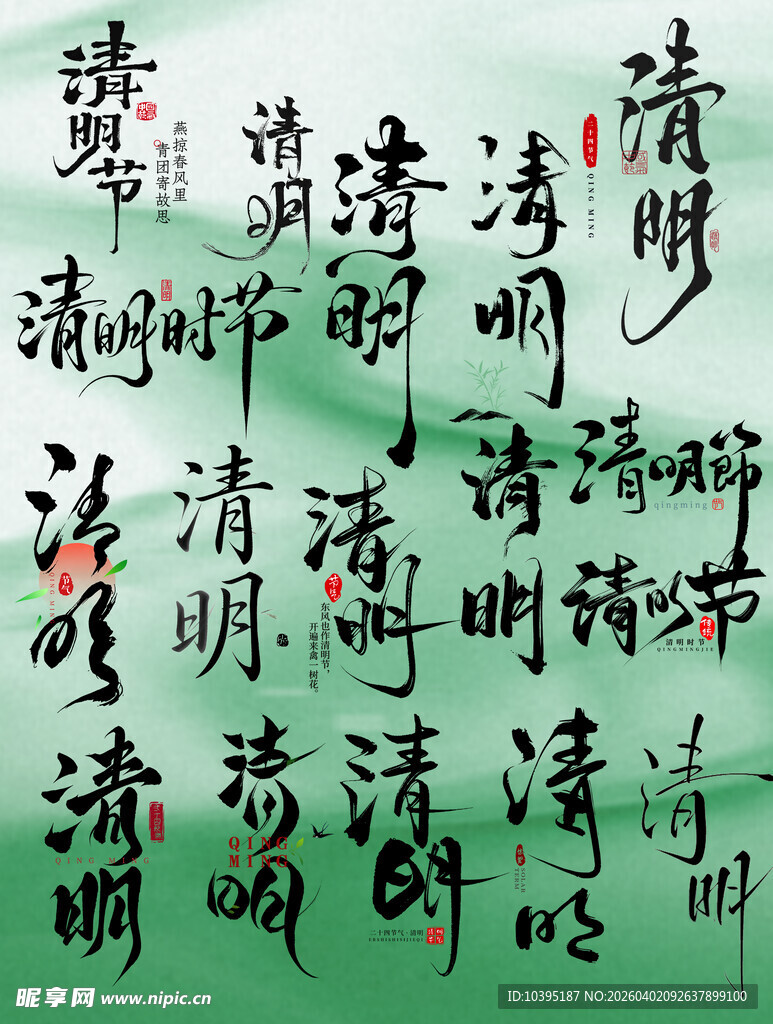 清明节
燕掠春风里
青团寄故思
清明
清明
清明
二十四节气
QING MING
清明
清明时节
清明
节气
QING MING
清明
清明
节气
东风也作清明节，
开遍来禽一树花。
清明
清明節
qingming
清明节
传统
清明时节
QINGMINGJIE
清明
QING MING
清明
QING
MING
清明
二十四节气·清明
ERSHISHIJIEQI
清明
SOLAR
TERM
清明
昵享网 www.nipic.cn
ID:10395187 NO:20260402092637899100